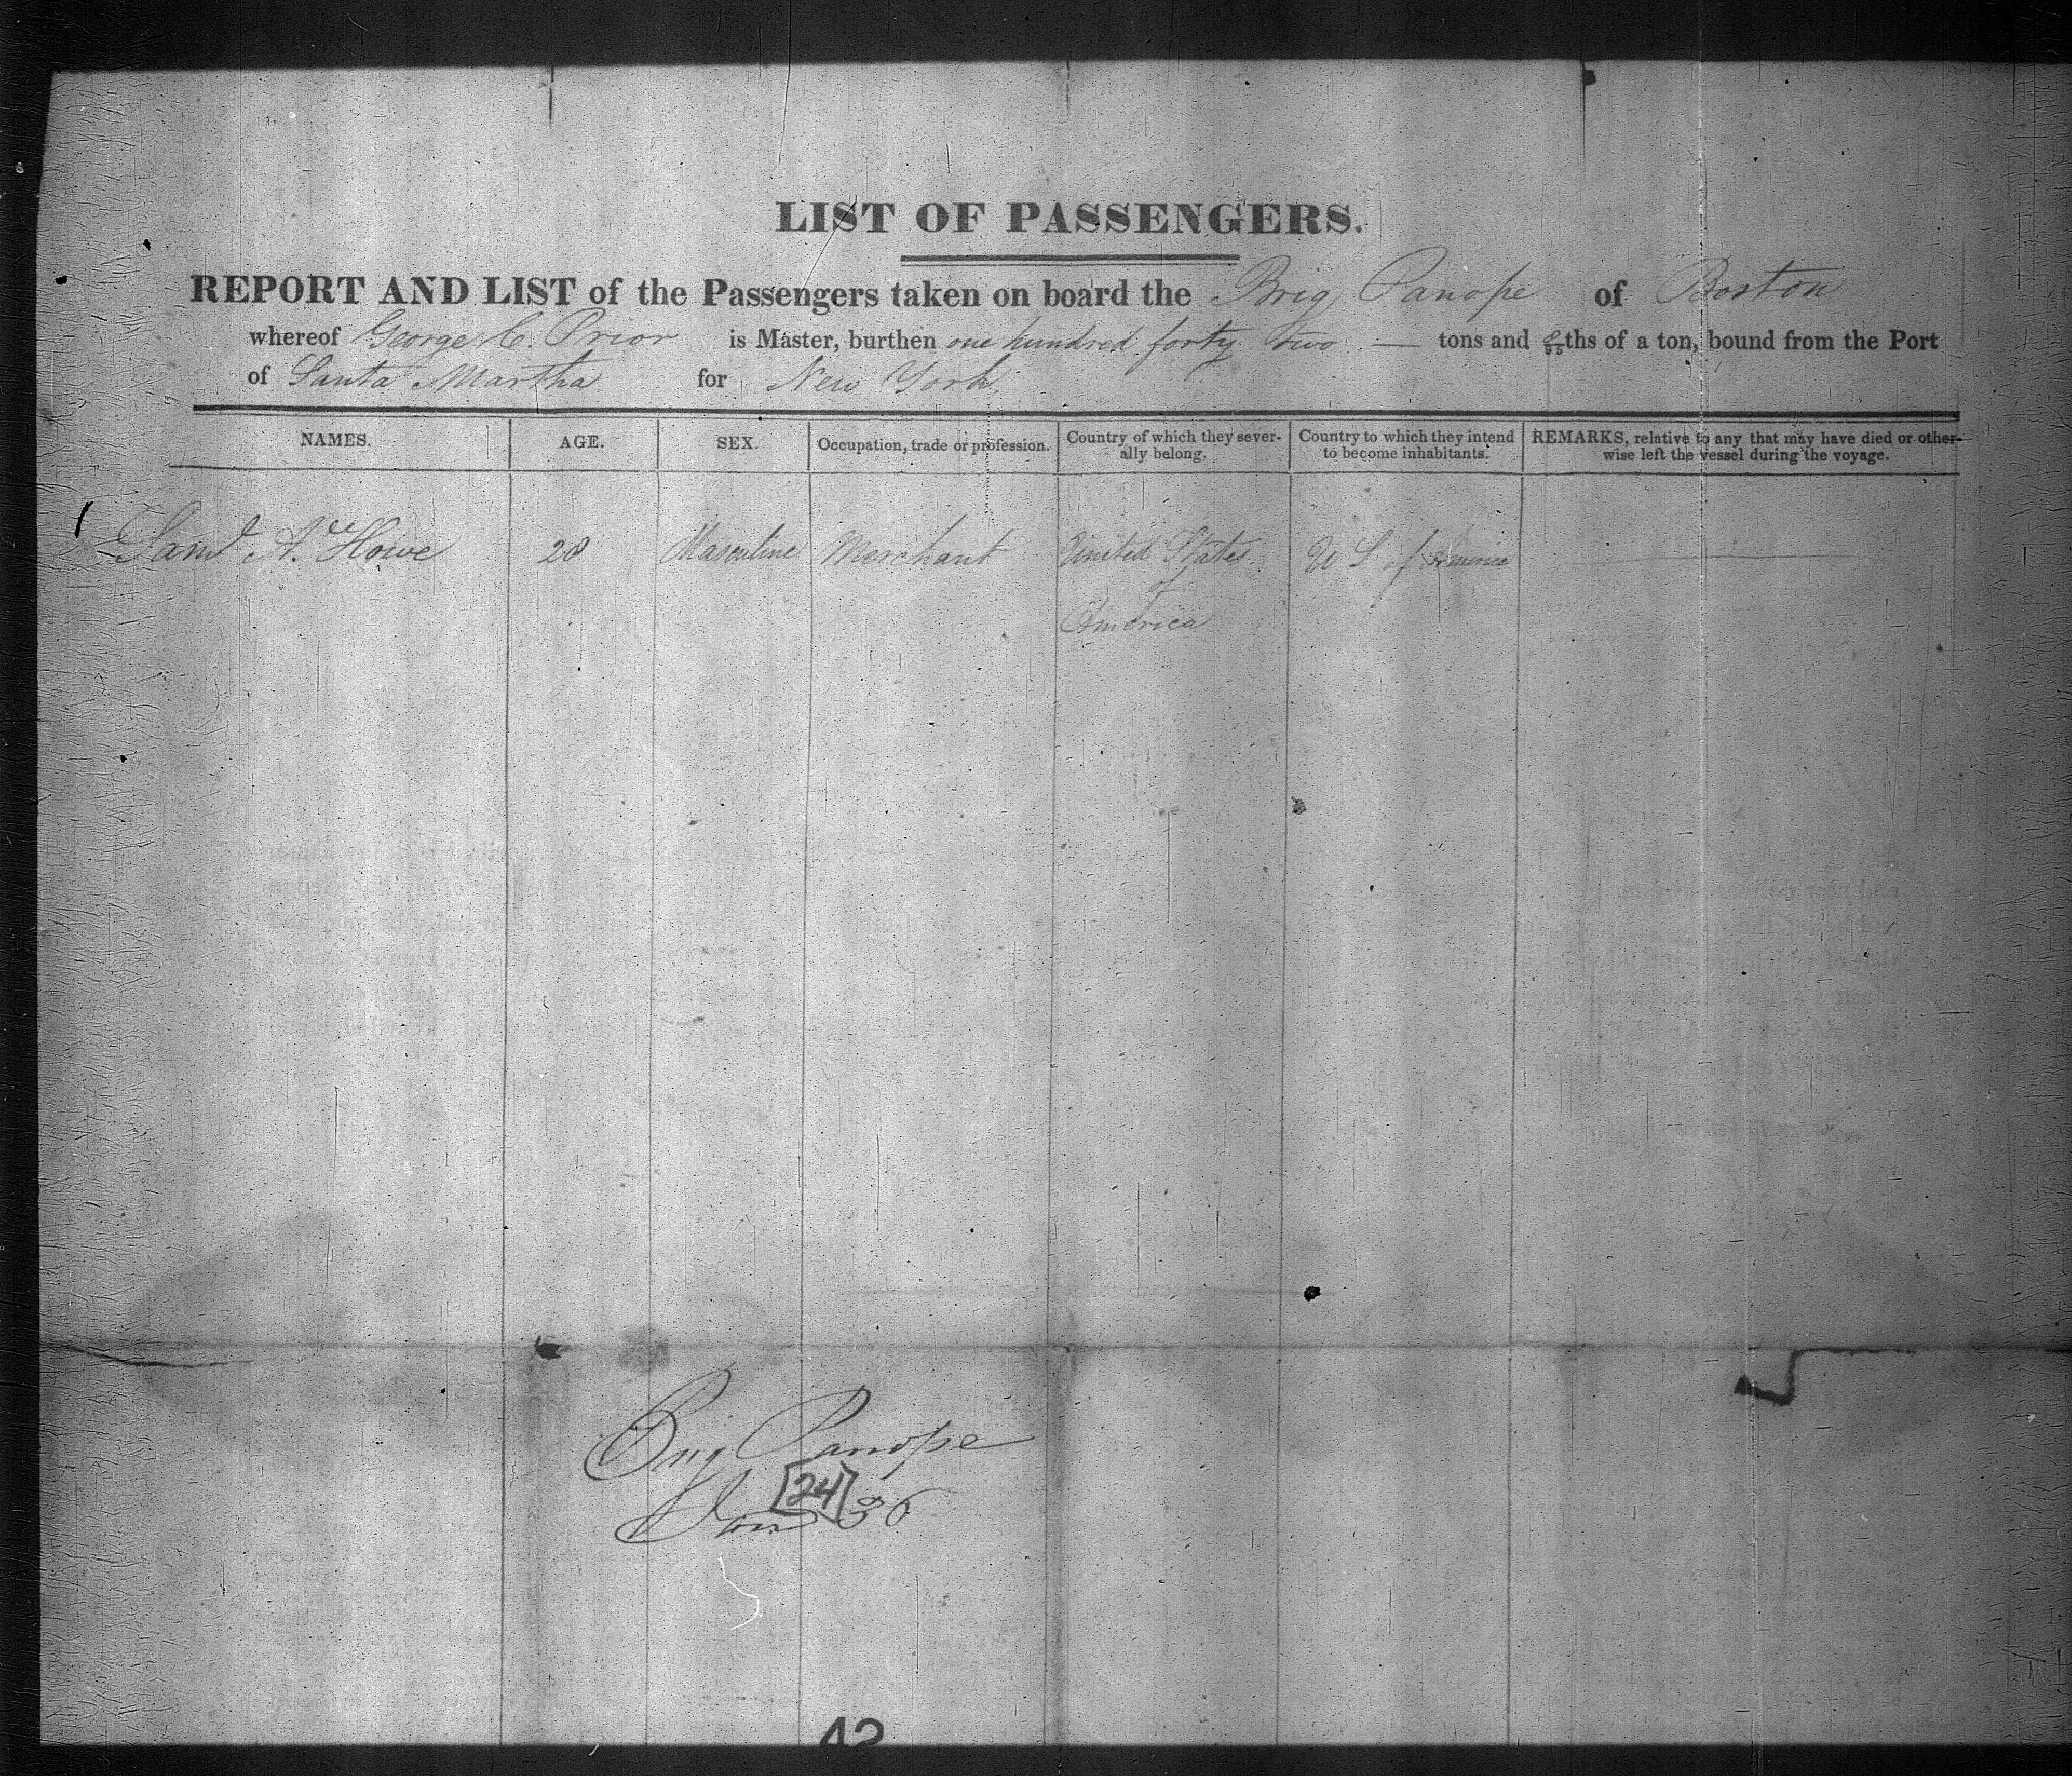 LIST OF PASSENGERS.
REPORT AND LIST of the Passengers taken on board the Brig Panope of Boston
whereof George C. Prior is Master, burthen one hundred forty two — tons and /95ths of a ton, bound from the Port
of Santa Martha for New York.
NAMES. AGE. SEX. Occupation, trade or profession. Country of which they severally belong. Country to which they intend to become inhabitants. REMARKS, relative to any that may have died or otherwise left the vessel during the voyage.
1 Saml A. Howe 28 Masculine Merchant United States U S of America —
of
America
Brig Panope
[24]
Jan 36
42